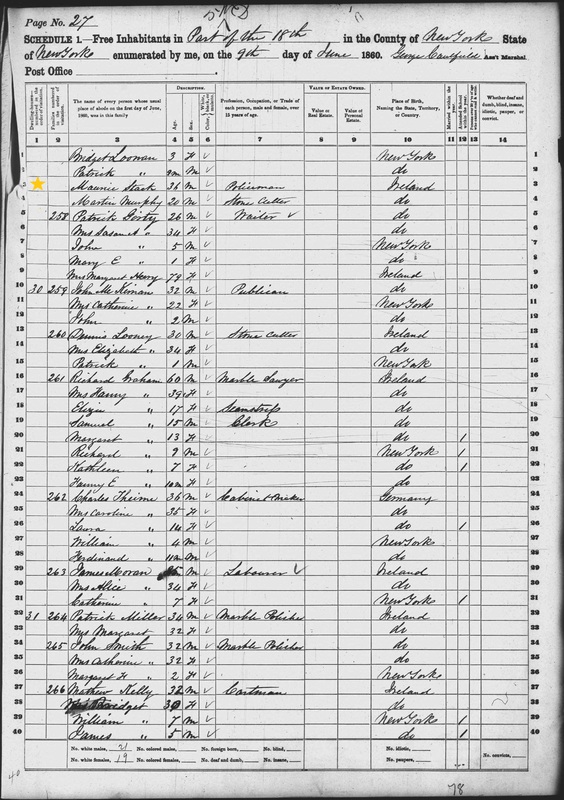 Page No. 27
2nd
SCHEDULE 1.—Free Inhabitants in Part of the 18th in the County of New York State
of New York enumerated by me, on the 9th day of June 1860. Ass't Marshal.
Post Office
Dwelling-houses numbered in the order of visitation.
Families numbered in the order of visitation.
The name of every person whose usual place of abode on the first day of June, 1860, was in this family
DESCRIPTION.
Age.
Sex.
Color,
Profession, Occupation, or Trade of each person, male and female, over 15 years of age.
VALUE OF ESTATE OWNED.
Value of Real Estate.
Value of Personal Estate.
Place of Birth, Naming the State, Territory, or Country.
Married within the year.
Attended School within the year.
Whether deaf and dumb, blind, insane, idiotic, pauper, or convict.
1 2 3 4 5 6 7 8 9 10 11 12 13 14
1 Bridget Loonan 3 F New York 1
2 Patrick " m do 2
3 Maurice Stack 36 M Policeman Ireland 3
4 Martin Murphy 20 M Stone Cutter do 4
5 258 Patrick 26 M Waiter do 5
6 Mrs Susan " 34 F do 6
7 John " 5 M New York 7
8 Mary E " 1 F do 8
9 Mrs Margaret Henry 79 F Ireland 9
10 30 259 John McKiman 32 M Publican do 10
11 Mrs Catherine " 22 F New York 11
12 John " 2 M do 12
13 260 Dennis Looney 30 M Stone Cutter Ireland 13
14 Mrs Elizabeth " 34 F do 14
15 Patrick " 1 M New York 15
16 261 Richard Graham 60 M Marble Sawyer Ireland 16
17 Mrs Fanny " 39 F do 17
18 Eliza " 17 F Seamstress do 18
19 Samuel " 15 M Clerk do 19
20 Margaret " 13 F do 1 20
21 Richard " 9 M New York 1 21
22 Kathleen " 7 F do 1 22
23 Fanny E " 10m F do 23
24 262 Charles Theime 36 M Cabinet Maker Germany 24
25 Mrs Caroline " 35 F do 25
26 Laura " 14 F do 1 26
27 William " 4 M New York 27
28 Ferdinand " M do 28
29 263 James Moran M Labourer Ireland 29
30 Mrs Alice " 34 F do 30
31 Catherine " 7 F New York 1 31
32 31 264 Patrick Miller 34 M Marble Polisher Ireland 32
33 Mrs Margaret 32 F do 33
34 265 John Smith 32 M Marble Polisher do 34
35 Mrs Catherine " 32 F do 35
36 Margaret F " 2 F New York 36
37 266 Mathew Kelly 32 M Cartman Ireland 37
38 Mrs Bridget 30 F do 38
39 William " 7 M New York 1 39
40 James " 5 M do 1 40
No. white males, 21 No. colored males, No. foreign born, No. blind, No. idiotic, No. convicts,
No. white females, 19 No. colored females, No. deaf and dumb, No. insane, No. paupers,
40
78